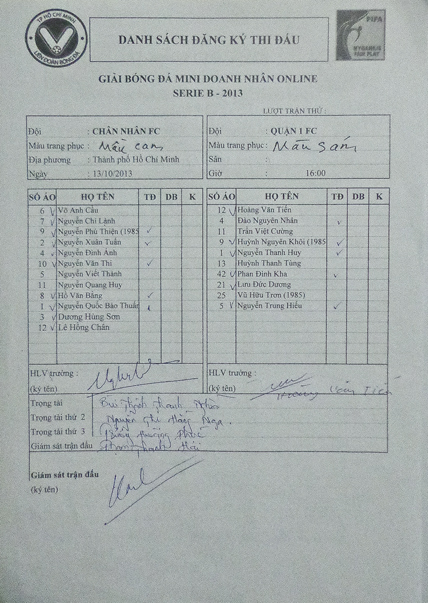 TP HỒ CHÍ MINH
LIÊN ĐOÀN BÓNG ĐÁ
DANH SÁCH ĐĂNG KÝ THI ĐẤU
FIFA
FAIR PLAY
GIẢI BÓNG ĐÁ MINI DOANH NHÂN ONLINE
SERIE B - 2013
LƯỢT TRẬN THỨ :
Đội : CHÂN NHÂN FC
Màu trang phục : Mầu cam
Địa phương : Thành phố Hồ Chí Minh
Ngày : 13/10/2013
Đội : QUẬN 1 FC
Màu trang phục : Mầu
Sân :
Giờ : 16:00
SỐ ÁO HỌ TÊN TĐ DB K
6 Võ Anh Cầu
7 Nguyễn Chí Lánh
9 Nguyễn Phú Thiện (1985
2 Nguyễn Xuân Tuấn
4 Nguyễn Đình Anh
10 Nguyễn Văn Thi
5 Nguyễn Viết Thành
11 Nguyễn Quang Huy
8 Hồ Văn Bằng
1 Nguyễn Quốc Bảo Thuận
3 Dương Hùng Sơn
12 Lê Hồng Chân
SỐ ÁO HỌ TÊN TĐ DB K
12 Hoàng Văn Tiến
4 Đào Nguyên Nhân
11 Trần Việt Cường
9 Huỳnh Nguyên Khôi (1985
1 Nguyễn Thanh Huy
13 Huỳnh Thanh Tùng
42 Phan Đình Kha
21 Lưu Đức Dương
25 Vũ Hữu Trơn (1985)
5 Nguyễn Trung Hiếu
HLV trưởng :
(ký tên)
HLV trưởng :
(ký tên) Hoàng Văn Tiến
Trọng tài Thanh
Trọng tài thứ 2 Nguyễn Thị Hồng Nga
Trọng tài thứ 3
Giám sát trận đấu
Giám sát trận đấu :
(ký tên)